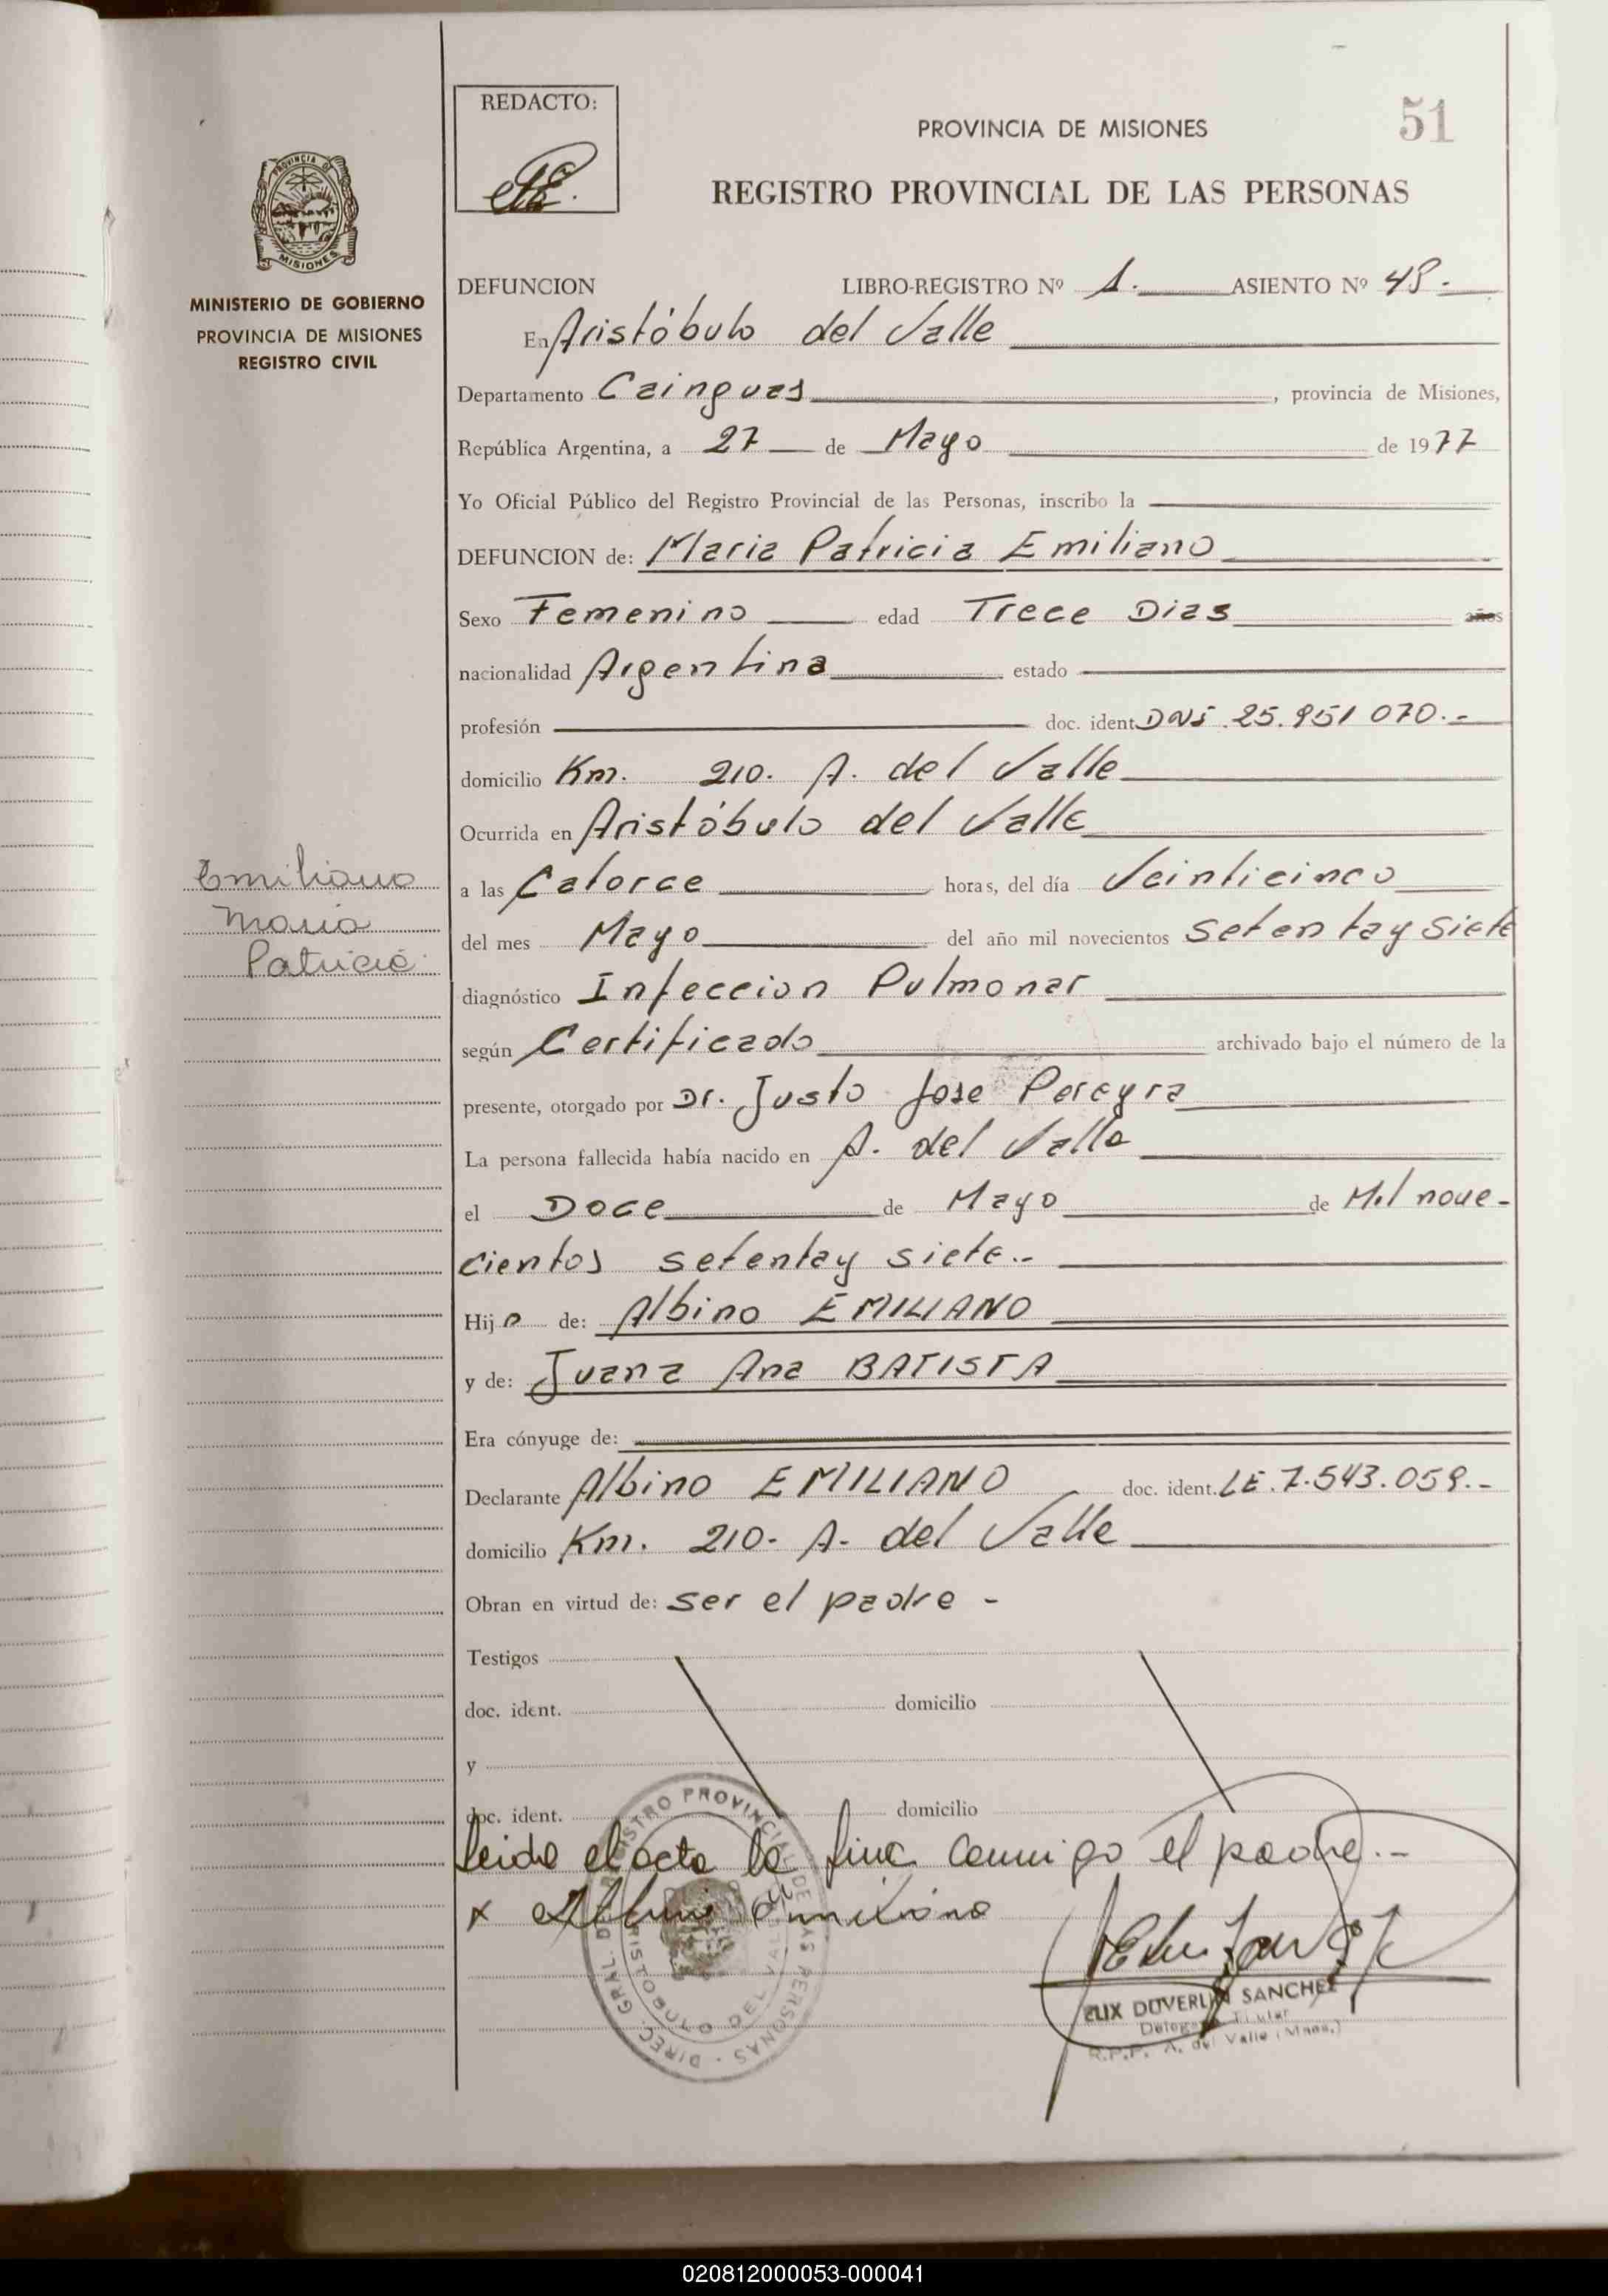 REDACTO:
51
PROVINCIA DE MISIONES
REGISTRO PROVINCIAL DE LAS PERSONAS
PROVINCIA DE
MISIONES
MINISTERIO DE GOBIERNO
PROVINCIA DE MISIONES
REGISTRO CIVIL
DEFUNCION LIBRO-REGISTRO Nº 1. ASIENTO Nº 49.-
En Aristóbulo del Valle
Departamento Cainguas, provincia de Misiones,
República Argentina, a 27 de Mayo de 1977
Yo Oficial Público del Registro Provincial de las Personas, inscribo la
DEFUNCION de: Maria Patricia Emiliano
Sexo Femenino edad Trece Dias años
nacionalidad Argentina estado
profesión doc. ident. DNi 25.951 070.-
domicilio Km. 210. A. del Valle
Ocurrida en Aristóbulo del Valle
a las Catorce horas, del día Veinticinco
del mes Mayo del año mil novecientos setentay siete
diagnóstico Infeccion Pulmonar
según Certificado archivado bajo el número de la
presente, otorgado por Dr. Justo Jose Pereyra
La persona fallecida había nacido en A. del Valle
el Doce de Mayo de Mil nove-
cientos setentay siete.-
Hija de: Albino EMILIANO
y de: Juana Ana BATISTA
Era cónyuge de:
Declarante Albino EMILIANO doc. ident. LE. 7.543.059.-
domicilio Km. 210- A- del Valle
Obran en virtud de: ser el padre -
Testigos
doc. ident. domicilio
y
doc. ident. domicilio
Leida el acta la firma conmigo el padre.-
x Albino Emiliano
ELIX DUVERLIN SANCHEZ
Delegado Titular
R.P.P. A. del Valle (Mnes.)
DIREC. GRAL. DEL REGISTRO PROVINCIAL DE LAS PERSONAS
ARISTOBULO DEL VALLE
Emiliano
Maria
Patricia
020812000053-000041